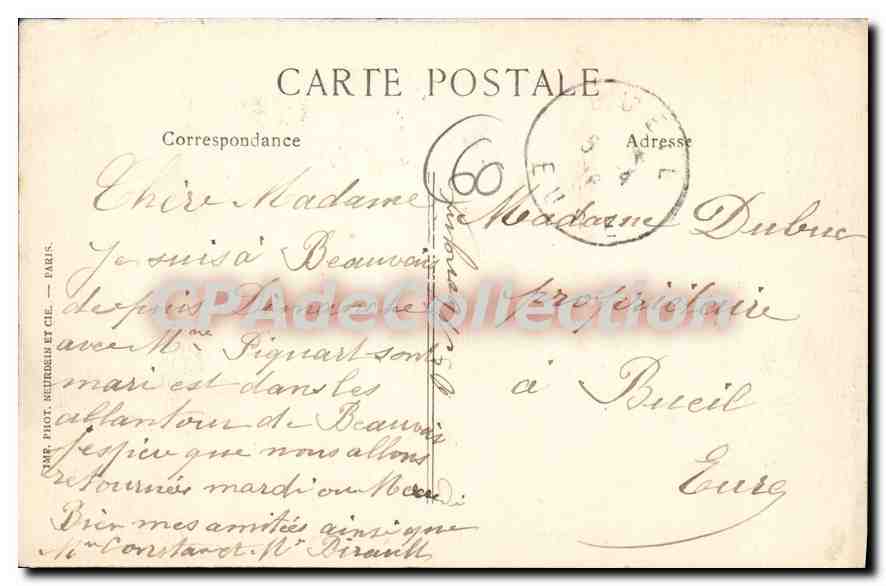 CARTE POSTALE
Correspondance
Adresse
60
Chère Madame
Je suis à Beauvais
depuis Dimanche
avec Mme Piquart son
mari est dans les
allantour de Beauvais
j'espier que nous allons
retournés mardi ou Mercredi
Bien mes amitiés ainsi que
Mr Constant Mr Birault
Madame Dubuc
propriétaire
à Bueil
Eure
BUEIL
EURE
IMP. PHOT. NEURDEIN ET CIE. — PARIS.
CPAdeCollection